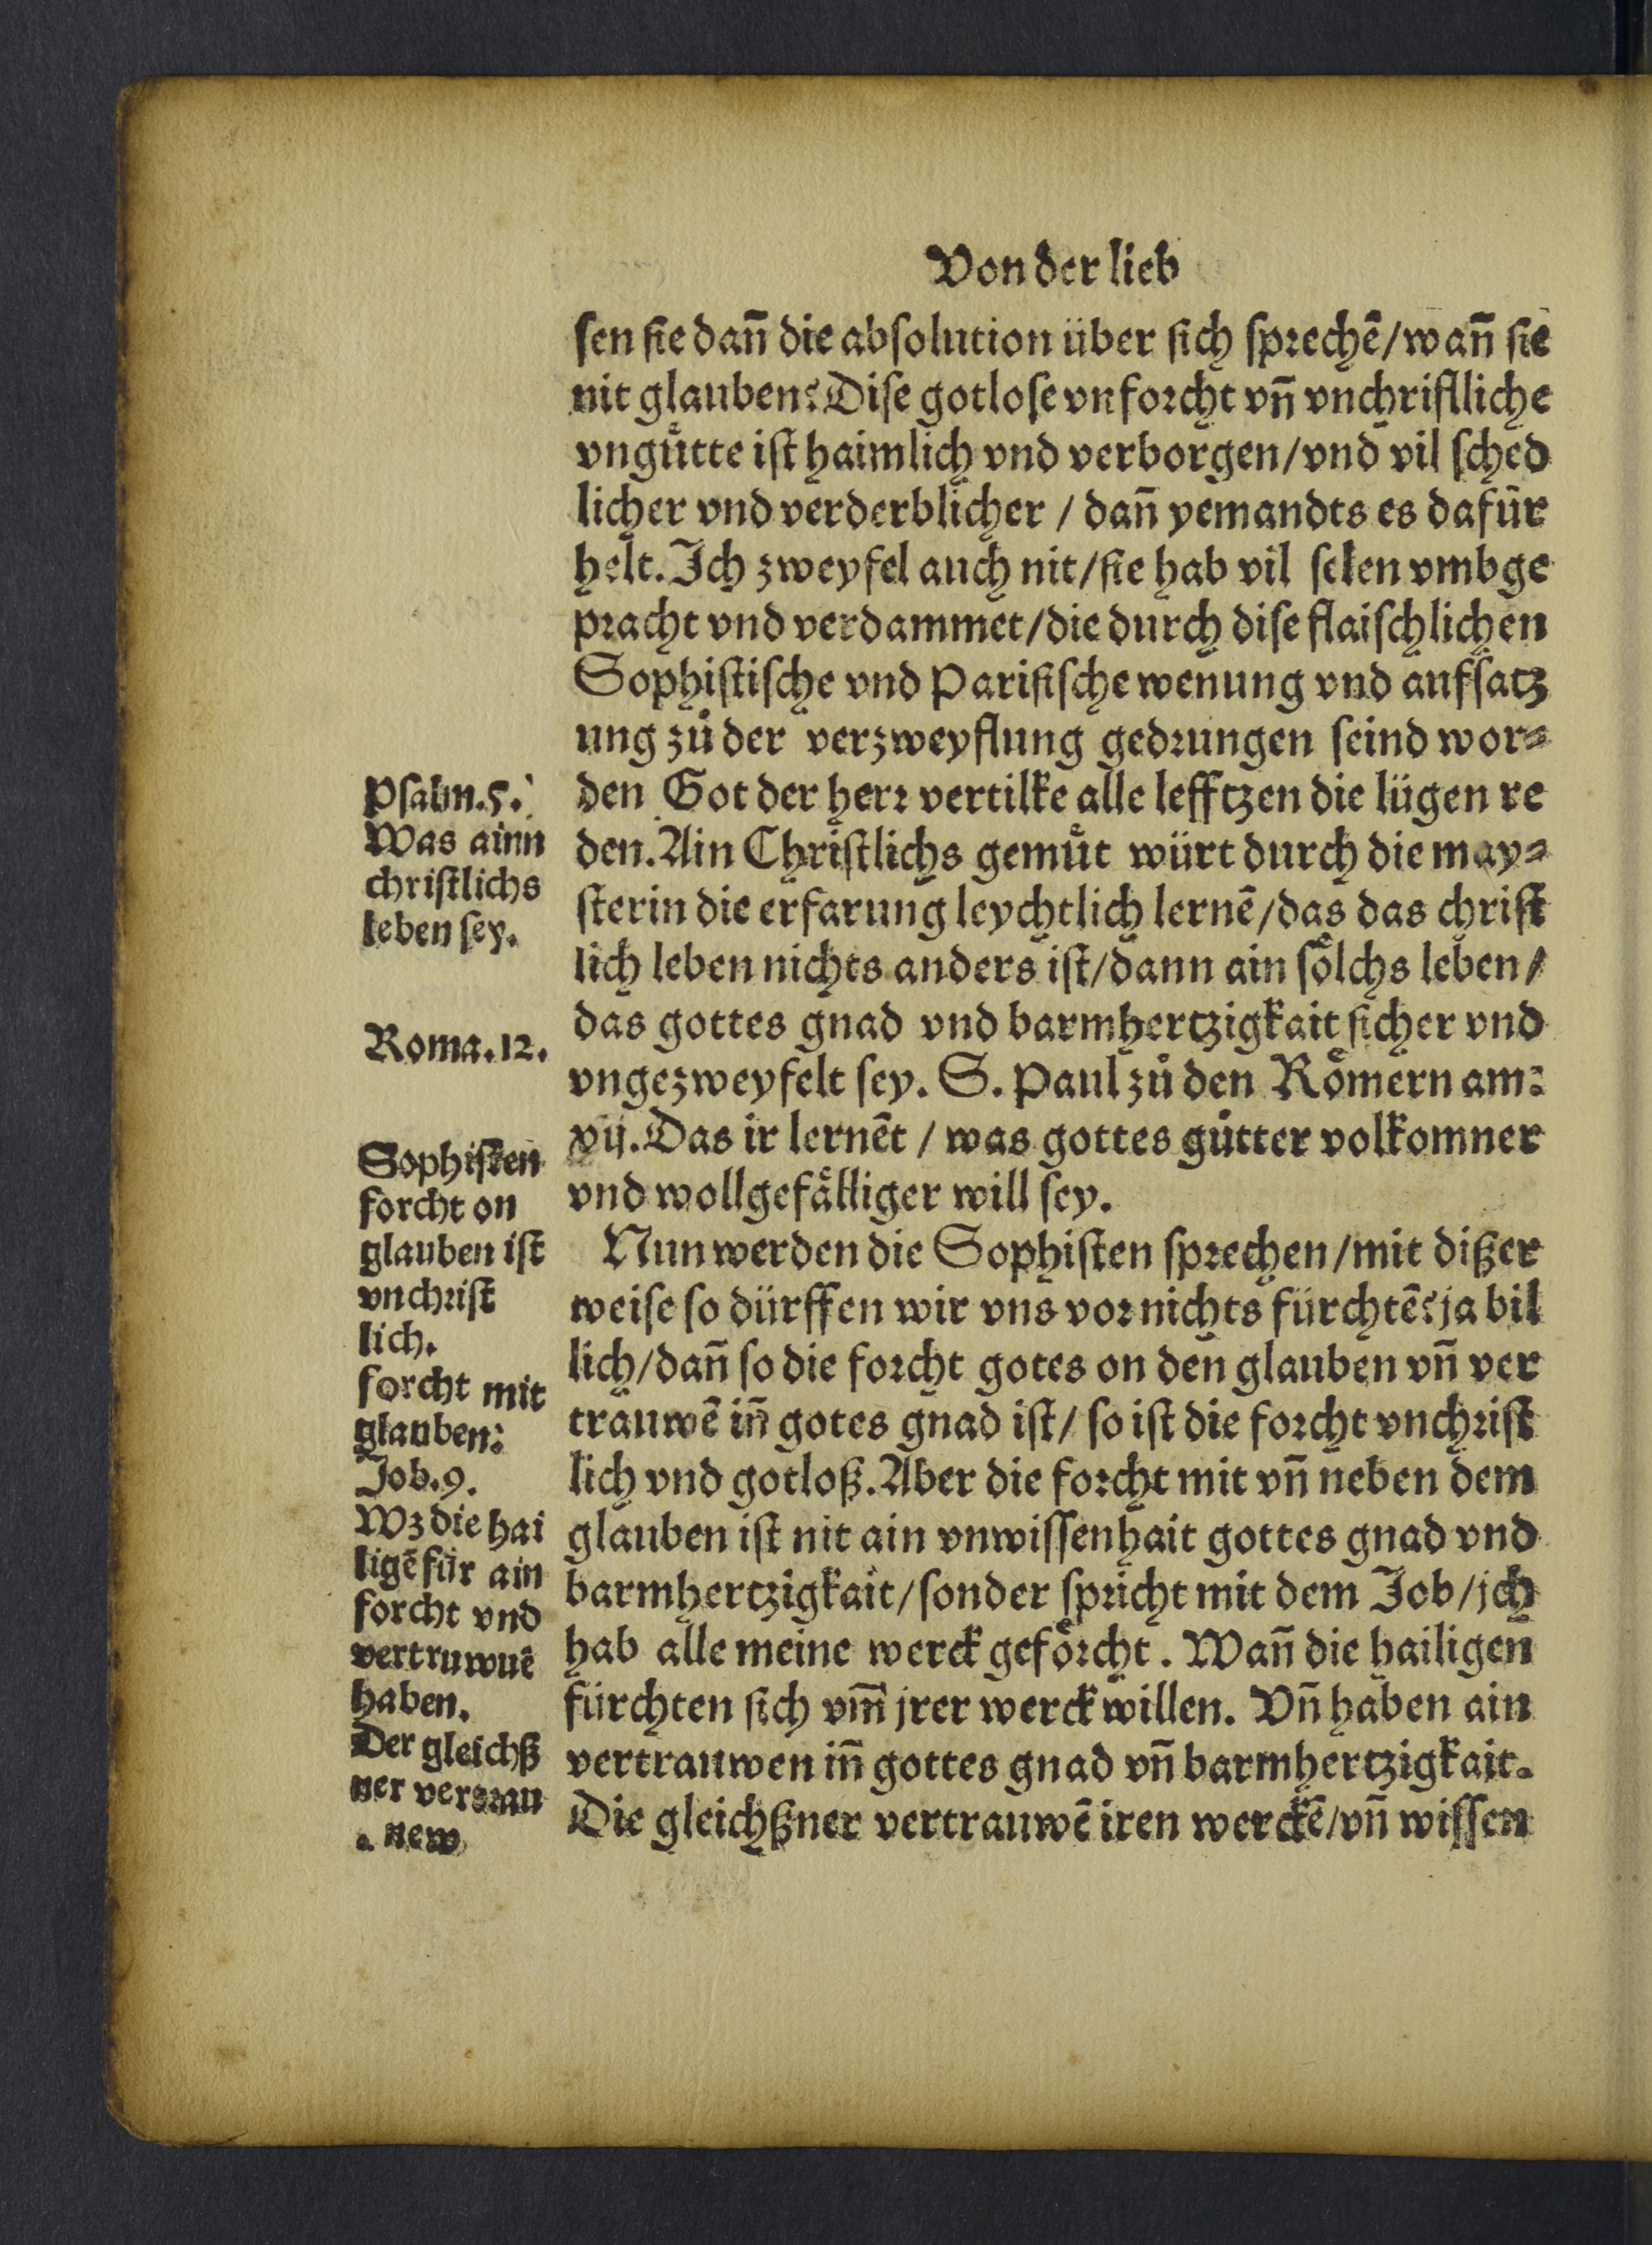 Von der lieb
ſen ſie dañ die abſolution über ſich ſprechẽ/wañ ſie
nit glauben? Diſe gotloſe vnforcht vñ vnchriſtliche
vngütte iſt haimlich vnd verborgen/vnd vil ſched
licher vnd verderblicher / dañ yemandts es dafür
helt. Ich zweyfel auch nit/ſie hab vil ſelen vmbge
pracht vnd verdammet/die durch diſe flaiſchlichen
Sophiſtiſche vnd Pariſiſche wenung vnd aufſatz
ung zů der verzweyflung gedrungen ſeind wor⸗
den Got der herr vertilke alle lefftzen die lügen re
den. Ain Chriſtlichs gemuͤt würt durch die may⸗
ſterin die erfarung leychtlich lernẽ/das das chriſt
lich leben nichts anders iſt/dann ain ſoͤlchs leben/
das gottes gnad vnd barmhertzigkait ſicher vnd
vngezweyfelt ſey. S. Paul zů den Roͤmern am:
xij. Das ir lernẽt / was gottes guͤtter volkomner
vnd wollgefaͤlliger will ſey.
Nun werden die Sophiſten ſprechen/mit dißer
weiſe ſo dürffen wir vns vor nichts fürchtẽ? ja bil
lich/dañ ſo die forcht gotes on den glauben vñ ver
trauwẽ iñ gotes gnad iſt/ ſo iſt die forcht vnchriſt
lich vnd gotloß. Aber die forcht mit vñ neben dem
glauben iſt nit ain vnwiſſenhait gottes gnad vnd
barmhertzigkait/ſonder ſpricht mit dem Job/jch
hab alle meine werck gefoͤrcht. Wañ die hailigen
fürchten ſich vm̃ jrer werck willen. Vñ haben ain
vertrauwen iñ gottes gnad vñ barmhertzigkait.
Die gleichßner vertrauwẽ iren werckẽ/vñ wiſſen
Pſalm.5.
Was ainn
chriſtlichs
leben ſey.
Roma.12.
Sophiſten
forcht on
glauben iſt
vnchriſt
lich.
forcht mit
glauben:
Job.9.
Wz die hai
ligẽ für ain
forcht vnd
vertruwuẽ
haben.
Der gleichß
ner
new